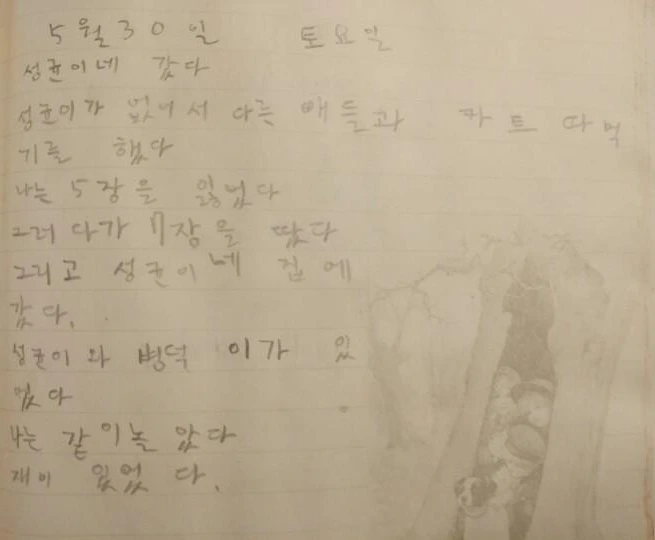 5월 30일 토요일
성균이네 갔다
성균이가 없어서 다른 애들과 카트 따먹
기를 했다
나는 5장을 잃었다
그러다가 7장을 땄다
그리고 성균이네 집에
갔다.
성균이와 병덕이가 있
었다
나는 같이놀았다
재미 있었다.